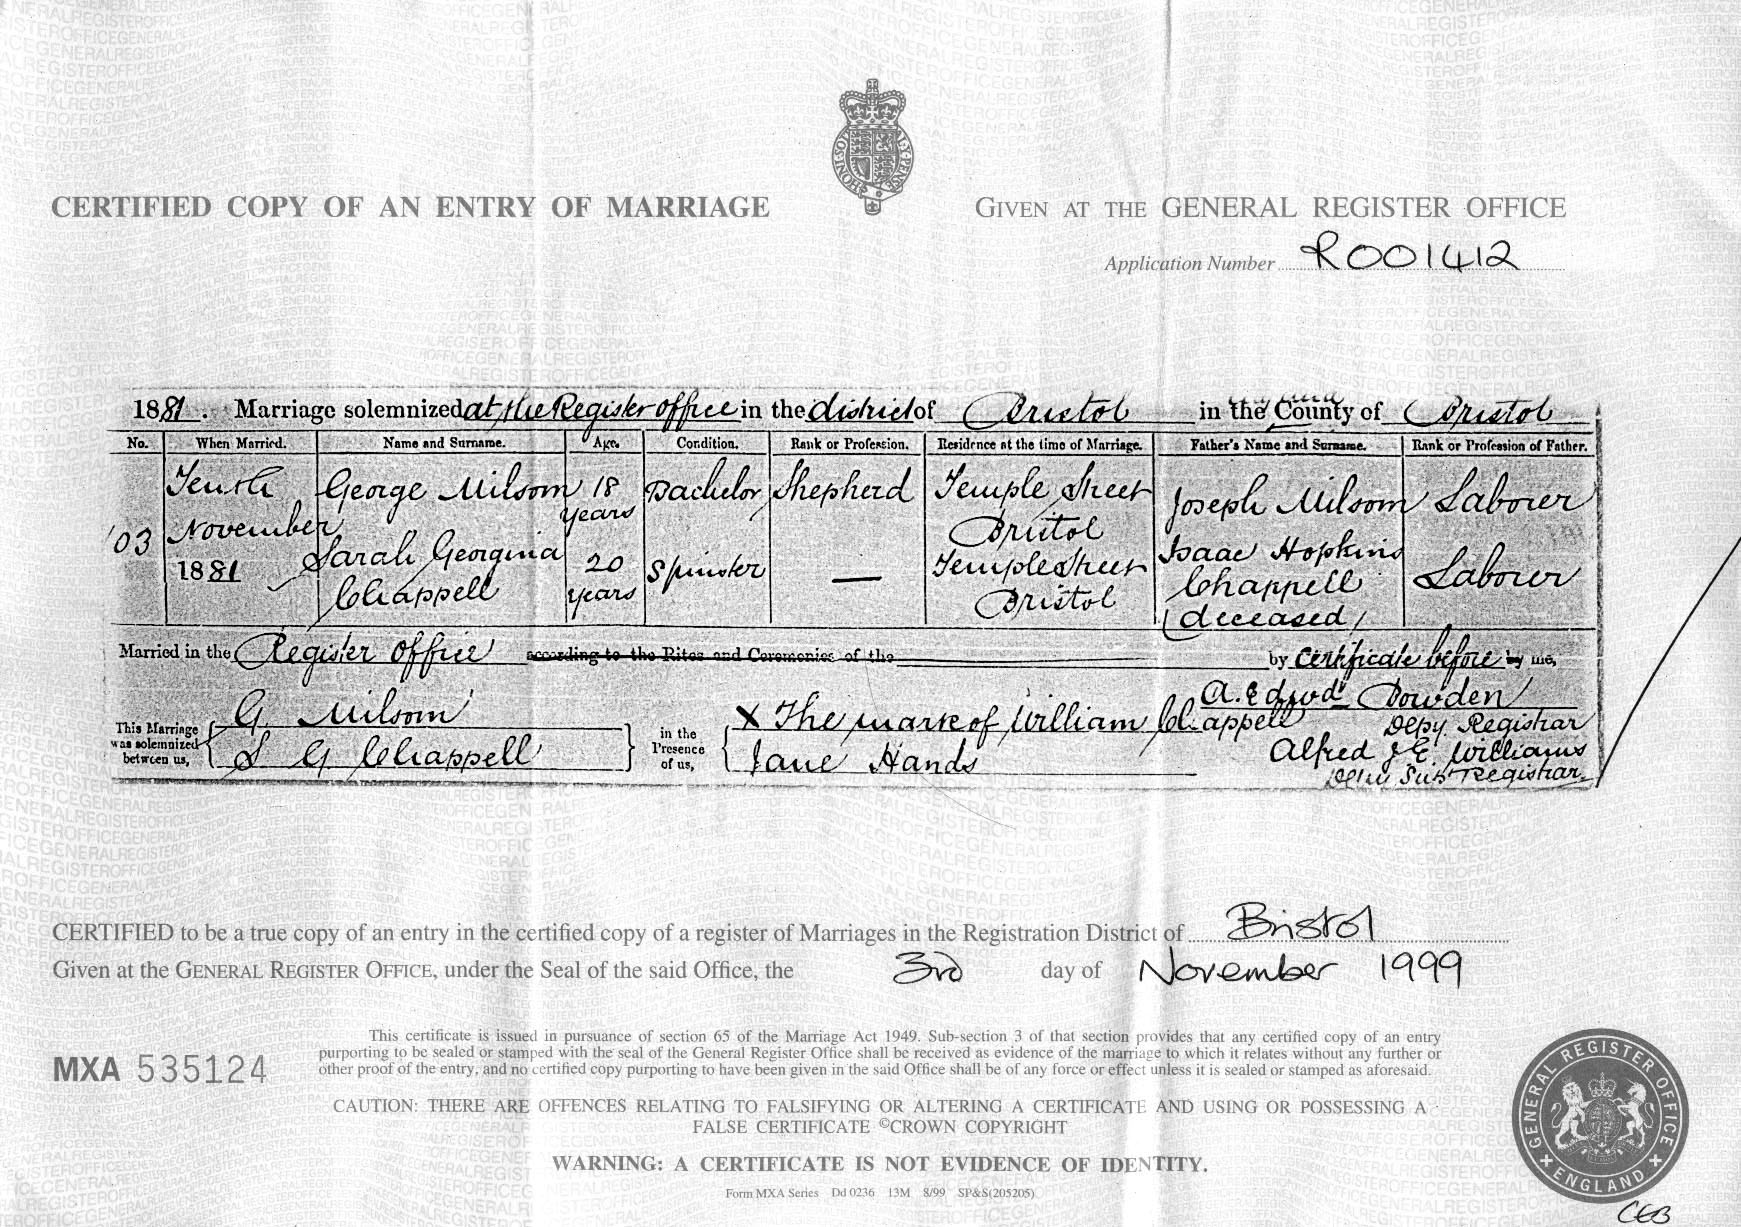 CERTIFIED COPY OF AN ENTRY OF MARRIAGE
GIVEN AT THE GENERAL REGISTER OFFICE
Application Number R001412
1881. Marriage solemnized at the Register office in the district of Bristol in the County of Bristol
No. When Married. Name and Surname. Age. Condition. Rank or Profession. Residence at the time of Marriage. Father's Name and Surname. Rank or Profession of Father.
103
Tenth
November
1881
George Milsom
18
years
Bachelor
Shepherd
Temple Street
Bristol
Joseph Milsom
Labourer
Sarah Georgina
Chappell
20
years
Spinster
—
Temple Street
Bristol
Isaac Hopkins
Chappell
(deceased)
Labourer
Married in the Register office according to the Rites and Ceremonies of the by Certificate before by me,
This Marriage
was solemnized
between us,
G. Milsom
S G Chappell
in the
Presence
of us,
X The mark of William Chappell
Jane Hands
A. Edwd Bowden
Depy. Registrar
Alfred J. E. Williams
Depy Supt Registrar
CERTIFIED to be a true copy of an entry in the certified copy of a register of Marriages in the Registration District of Bristol
Given at the GENERAL REGISTER OFFICE, under the Seal of the said Office, the 3rd day of November 1999
This certificate is issued in pursuance of section 65 of the Marriage Act 1949. Sub-section 3 of that section provides that any certified copy of an entry
purporting to be sealed or stamped with the seal of the General Register Office shall be received as evidence of the marriage to which it relates without any further or
other proof of the entry, and no certified copy purporting to have been given in the said Office shall be of any force or effect unless it is sealed or stamped as aforesaid.
MXA 535124
CAUTION: THERE ARE OFFENCES RELATING TO FALSIFYING OR ALTERING A CERTIFICATE AND USING OR POSSESSING A
FALSE CERTIFICATE ©CROWN COPYRIGHT
WARNING: A CERTIFICATE IS NOT EVIDENCE OF IDENTITY.
Form MXA Series Dd 0236 13M 8/99 SP&S(205205)
GENERAL REGISTER OFFICE
ENGLAND
CEB